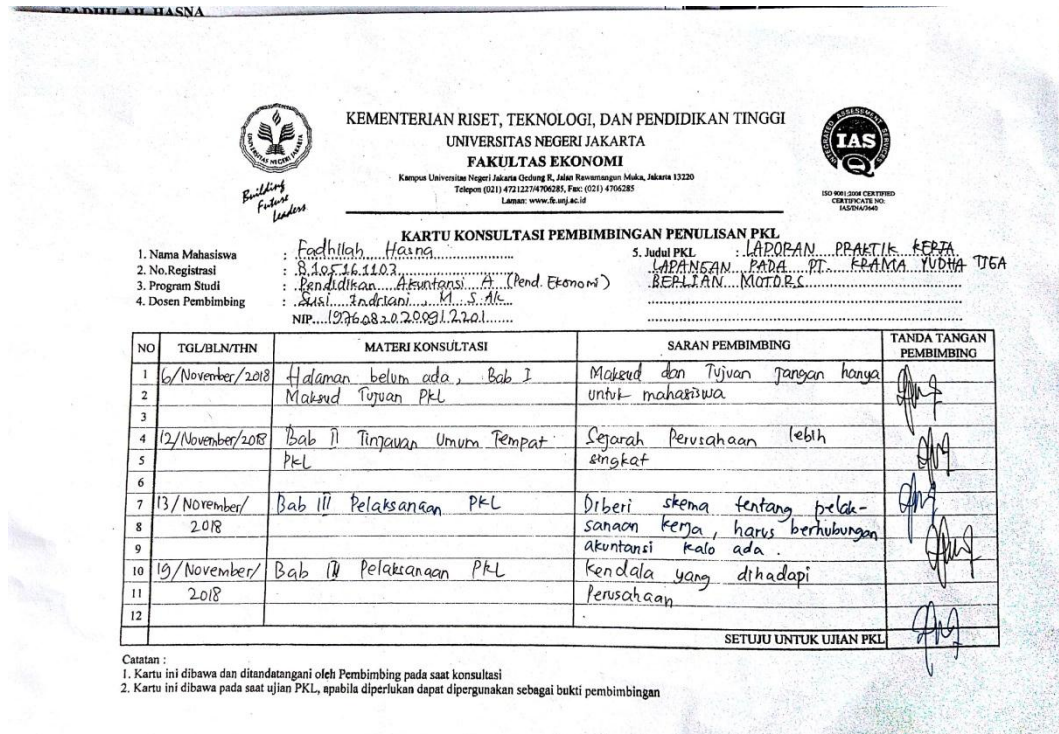 FADHILAH HASNA
KEMENTERIAN RISET, TEKNOLOGI, DAN PENDIDIKAN TINGGI
UNIVERSITAS NEGERI JAKARTA
FAKULTAS EKONOMI
Kampus Universitas Negeri Jakarta Gedung R, Jalan Rawamangun Muka, Jakarta 13220
Telepon (021) 4721227/4706285, Fax: (021) 4706285
Laman: www.fe.unj.ac.id
UNIVERSITAS NEGERI JAKARTA
Building
Future
Leaders
INTEGRATED ASSESSMENT SERVICES
IAS
ISO 9001:2008 CERTIFIED
CERTIFICATE NO:
IAS/INA/3640
KARTU KONSULTASI PEMBIMBINGAN PENULISAN PKL
1. Nama Mahasiswa : Fadhilah Hasna
2. No.Registrasi : 8105161103
3. Program Studi : Pendidikan Akuntansi A (Pend. Ekonomi)
4. Dosen Pembimbing : Susi Indriani, M.S.Ak
NIP. 197608202009122001
5. Judul PKL : LAPORAN PRAKTIK KERJA
LAPANGAN PADA PT. KRAMA YUDHA TIGA
BERLIAN MOTORS
NO TGL/BLN/THN MATERI KONSULTASI SARAN PEMBIMBING TANDA TANGAN PEMBIMBING
1 6/November/2018 Halaman belum ada, Bab I Maksud dan Tujuan jangan hanya
2 Maksud Tujuan PKL untuk mahasiswa
3
4 12/November/2018 Bab II Tinjauan Umum Tempat Sejarah Perusahaan lebih
5 PKL singkat
6
7 13/November/ Bab III Pelaksanaan PKL Diberi skema tentang pelak-
8 2018 sanaan kerja, harus berhubungan
9 akuntansi kalo ada.
10 19/November/ Bab III Pelaksanaan PKL Kendala yang dihadapi
11 2018 Perusahaan
12
SETUJU UNTUK UJIAN PKL
Catatan :
1. Kartu ini dibawa dan ditandatangani oleh Pembimbing pada saat konsultasi
2. Kartu ini dibawa pada saat ujian PKL, apabila diperlukan dapat dipergunakan sebagai bukti pembimbingan